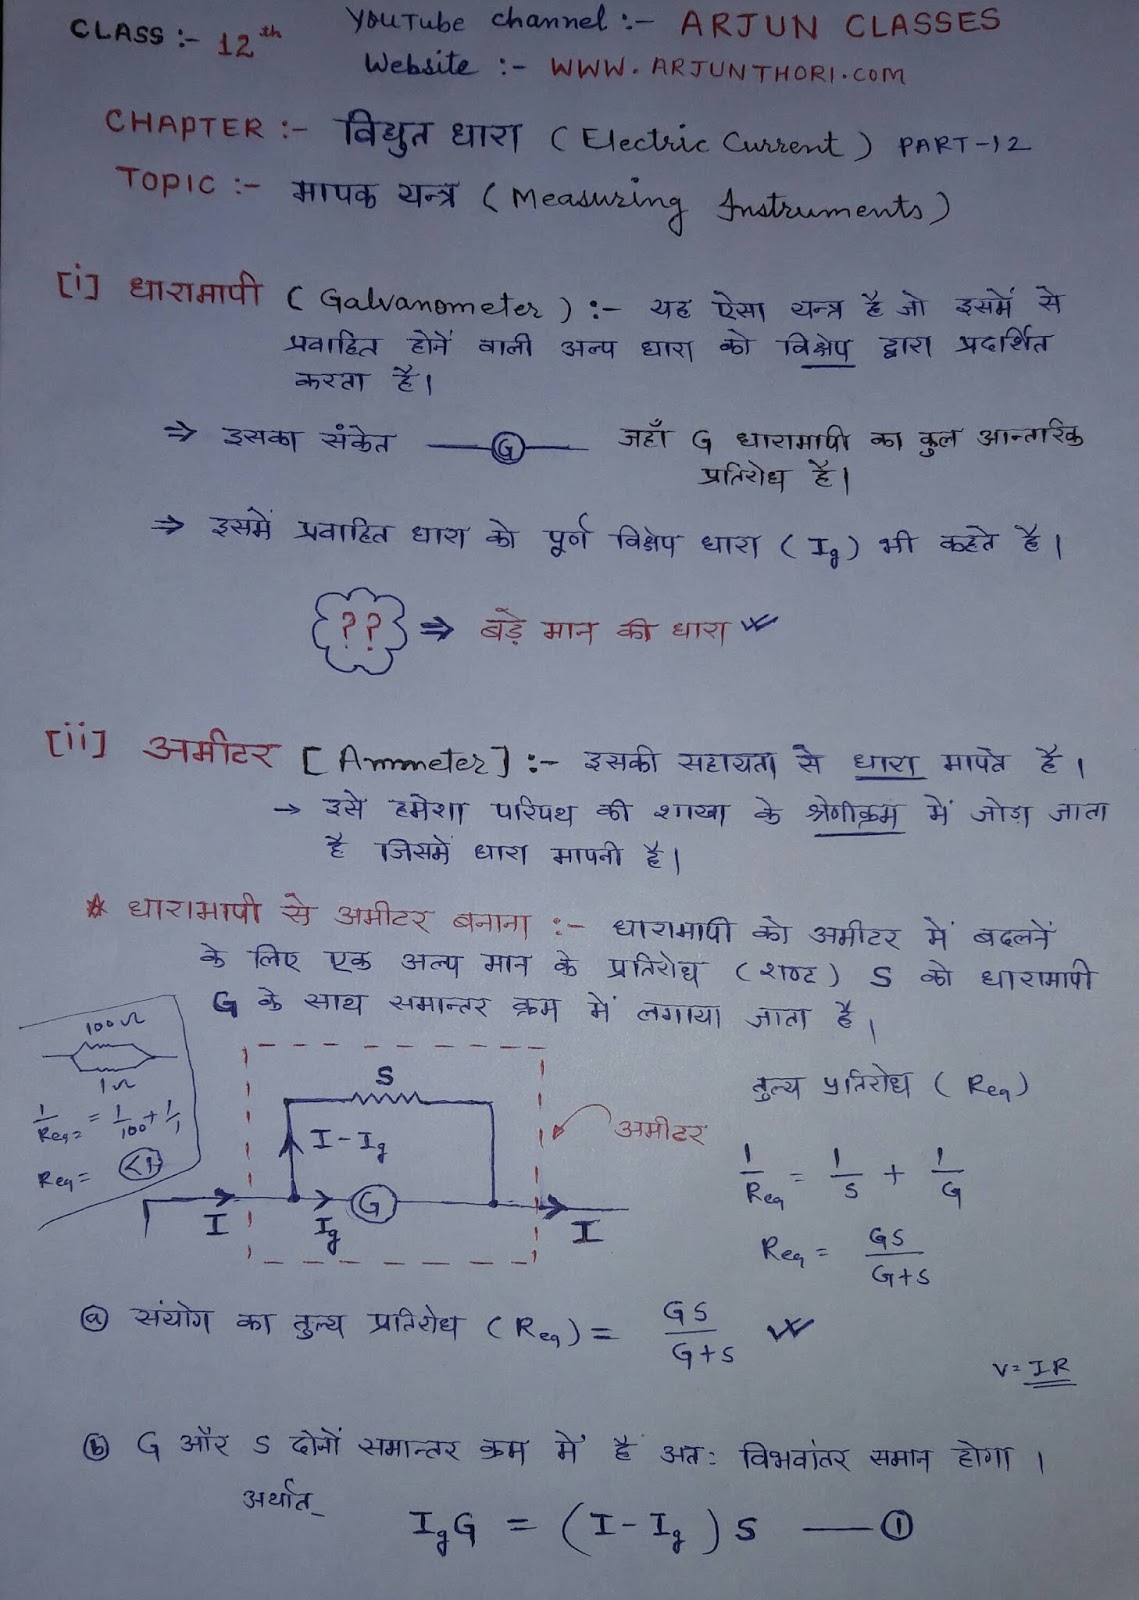 CLASS :- 12th
YouTube channel :- ARJUN CLASSES
Website :- WWW.ARJUNTHORI.COM
CHAPTER :- विद्युत धारा ( Electric Current ) PART-12
TOPIC :- मापक यन्त्र ( Measuring Instruments )
[i] धारामापी ( Galvanometer ) :- यह ऐसा यन्त्र है जो इसमें से
प्रवाहित होनें वाली अल्प धारा को विक्षेप द्वारा प्रदर्शित
करता है।
⇒ इसका संकेत G जहाँ G धारामापी का कुल आन्तरिक
प्रतिरोध है।
⇒ इसमें प्रवाहित धारा को पूर्ण विक्षेप धारा ( Ig ) भी कहते है।
?? ⇒ बड़े मान की धारा
[ii] अमीटर [ Ammeter ] :- इसकी सहायता से धारा मापते है।
→ इसे हमेशा परिपथ की शाखा के श्रेणीक्रम में जोड़ा जाता
है जिसमें धारा मापनी है।
* धारामापी से अमीटर बनाना :- धारामापी को अमीटर में बदलनें
के लिए एक अल्प मान के प्रतिरोध ( शण्ट ) S को धारामापी
G के साथ समान्तर क्रम में लगाया जाता है।
100Ω
1Ω
1/Req = 1/100 + 1/1
Req = <1
S
I - Ig
I Ig G I
अमीटर
तुल्य प्रतिरोध ( Req )
1/Req = 1/S + 1/G
Req = GS/G+S
(a) संयोग का तुल्य प्रतिरोध ( Req ) = GS/G+S
V = IR
(b) G और S दोनों समान्तर क्रम में है अतः विभवांतर समान होगा।
अर्थात्
IgG = ( I - Ig ) S — (1)